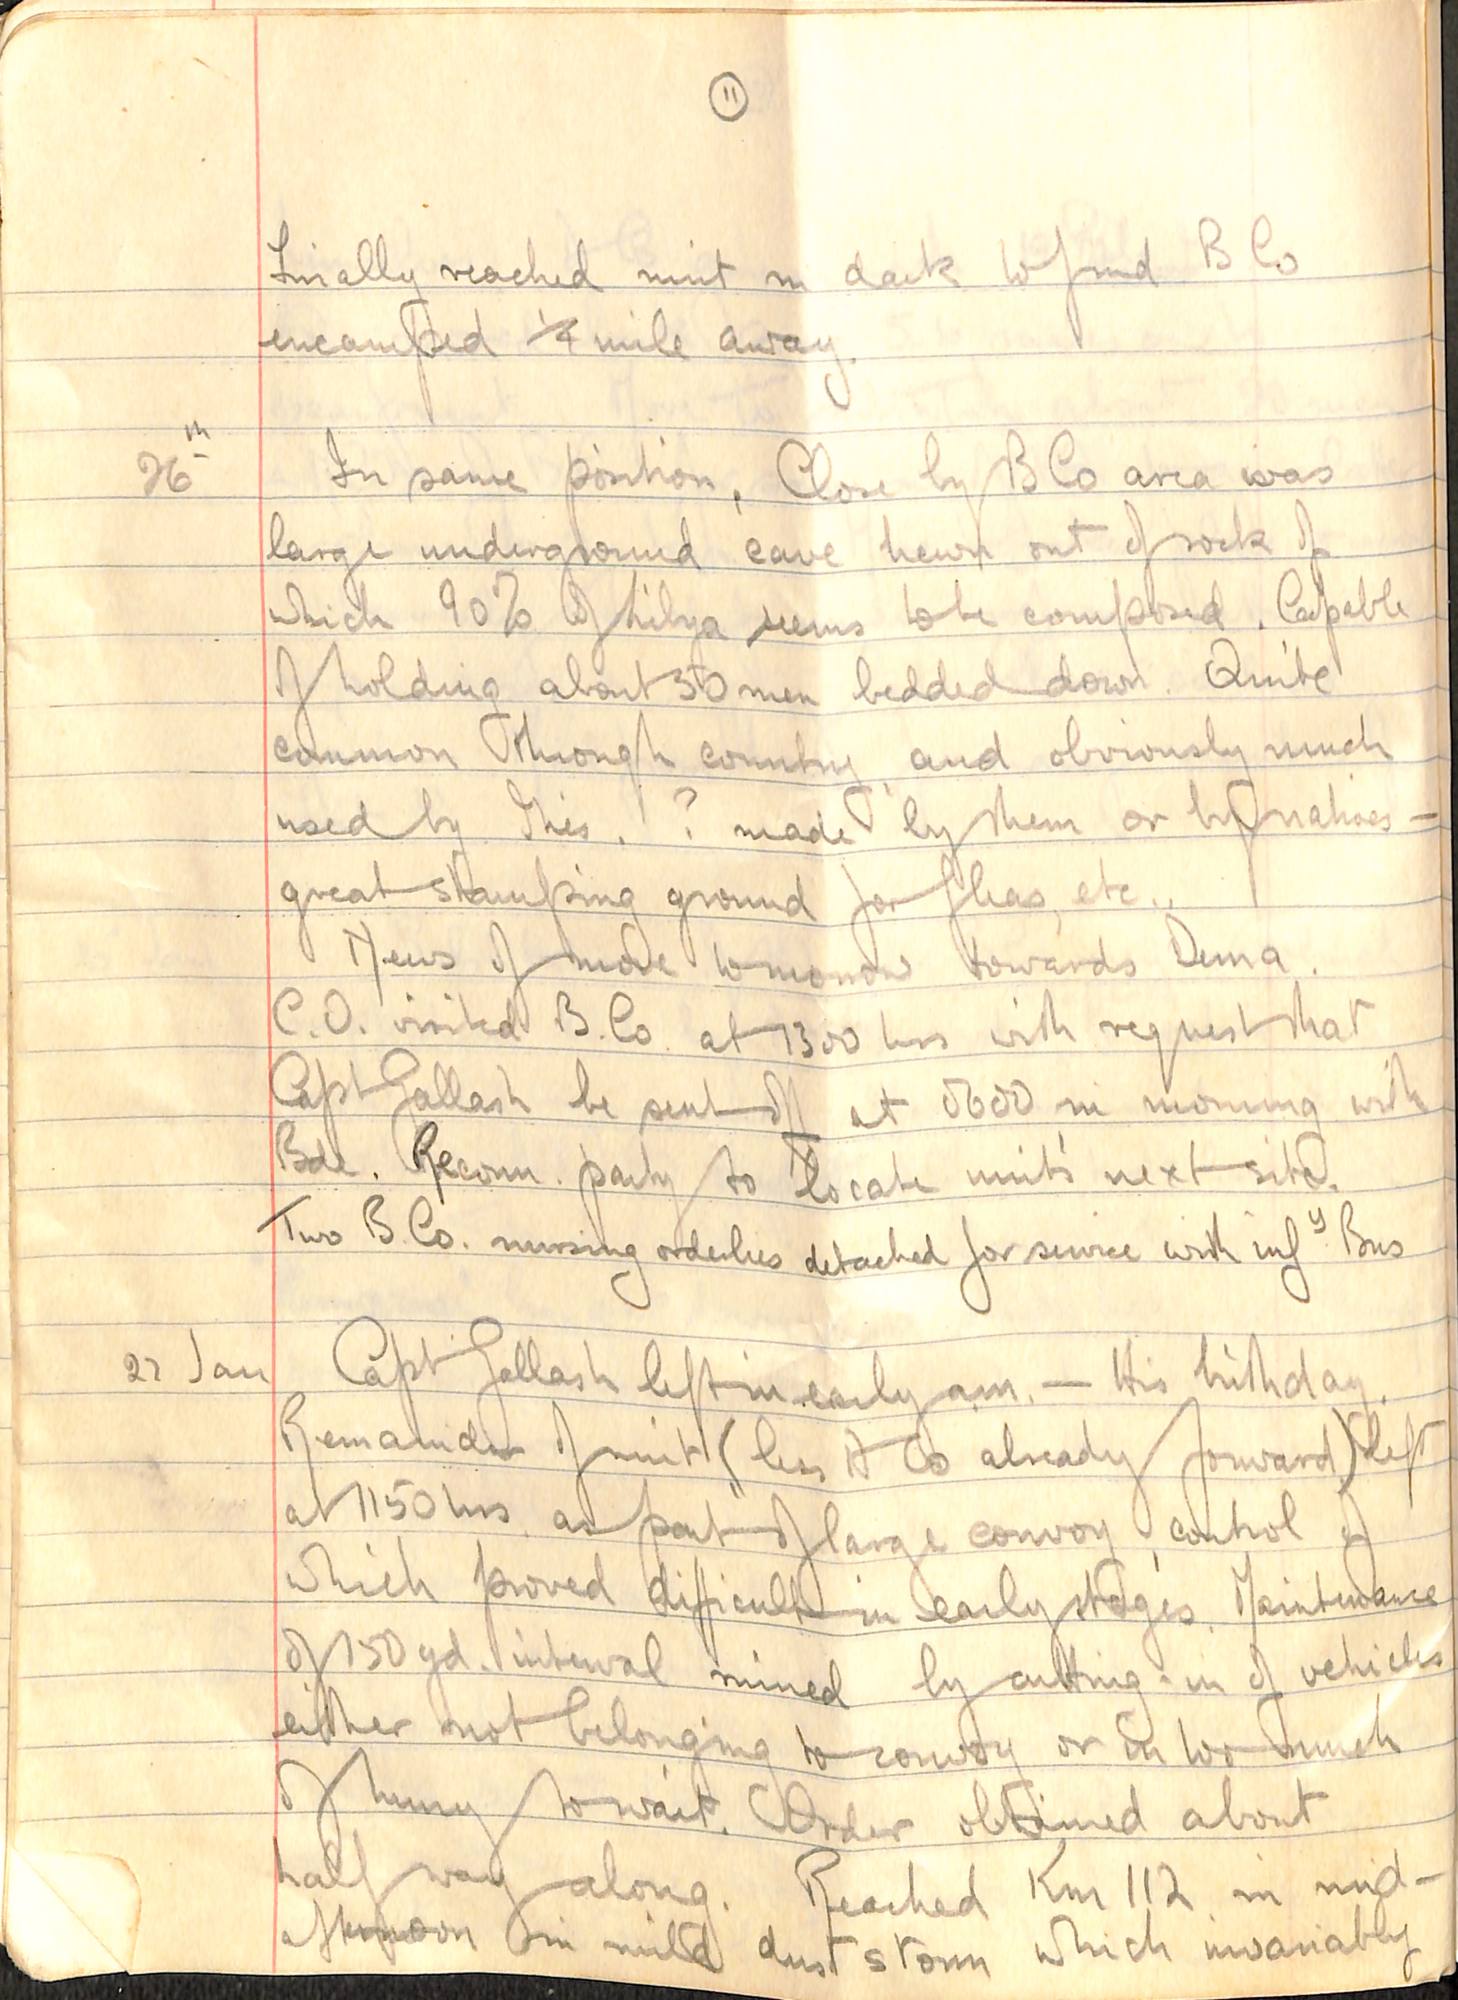 11
Finally reached unit in dark to find B Co
encamped 1/4 mile away.
26th In same position. Close by B Co area was
large underground cave hewn out of rock of
which 90% of Libya seems to be composed. Capable
of holding about 50 men bedded down. Quite
common through country, and obviously much
used by this. ? made by them or by natives —
great stamping ground for fleas, etc..
News of move tomorrow towards Derna.
C.O. visited B.Co. at 1300 hrs with request that
Capt Gallash be sent off at 0600 in morning with
Bde. Reconn. party to locate unit's next site.
Two B.Co. nursing orderlies detached for service with infy Bns
27 Jan Capt Gallash left in early a.m. — His birthday.
Remainder of unit (less A Co already forward) left
at 1150 hrs as part of large convoy, control of
which proved difficult in early stages. Maintenance
of 150 yd. interval ruined by cutting-in of vehicles
either not belonging to convoy or in too much
of hurry to wait. Order obtained about
half way along. Reached Km 112 in mid-
afternoon in mild dust storm which invariably